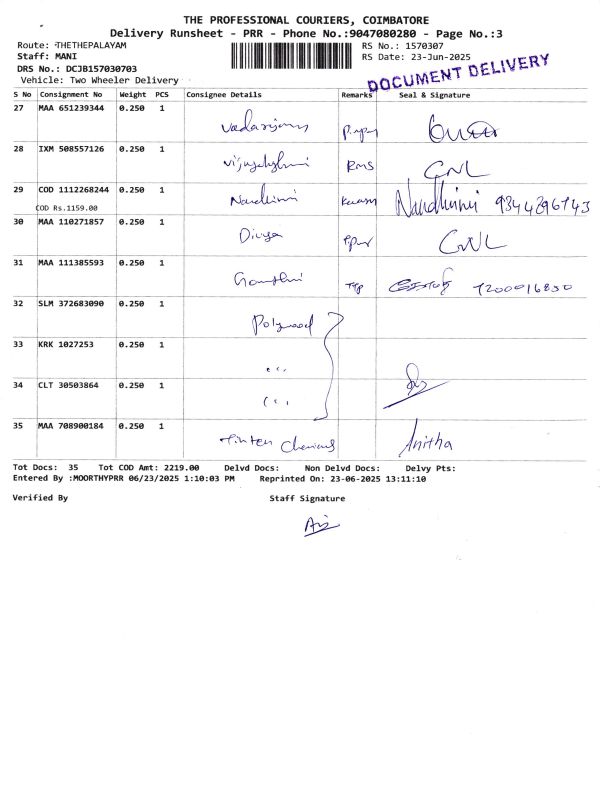 THE PROFESSIONAL COURIERS, COIMBATORE
Delivery Runsheet - PRR - Phone No.:9047080280 - Page No.:3
Route: THETHEPALAYAM RS No.: 1570307
Staff: MANI RS Date: 23-Jun-2025
DRS No.: DCJB157030703
Vehicle: Two Wheeler Delivery
DOCUMENT DELIVERY
S No Consignment No Weight PCS Consignee Details Remarks Seal & Signature
27 MAA 651239344 0.250 1
28 IXM 508557126 0.250 1 RMS GNL
29 COD 1112268244 0.250 1 Nandhini Nandhini 9344296743
COD Rs.1159.00
30 MAA 110271857 0.250 1 Divya GNL
31 MAA 111385593 0.250 1 Gomathi 7200016830
32 SLM 372683090 0.250 1
33 KRK 1027253 0.250 1
34 CLT 30503864 0.250 1
35 MAA 708900184 0.250 1 Anitha
Tot Docs: 35 Tot COD Amt: 2219.00 Delvd Docs: Non Delvd Docs: Delvy Pts:
Entered By :MOORTHYPRR 06/23/2025 1:10:03 PM Reprinted On: 23-06-2025 13:11:10
Verified By Staff Signature